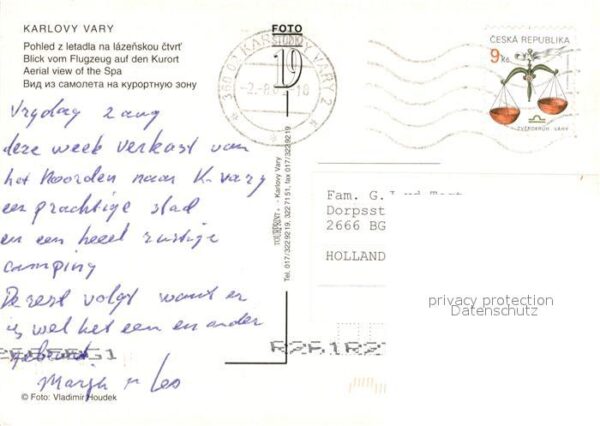 KARLOVY VARY
Pohled z letadla na lázeňskou čtvrť
Blick vom Flugzeug auf den Kurort
Aerial view of the Spa
Вид из самолета на курортную зону
Vrijdag 2 aug
deze week verkast van
het Noorden naar K-vary
een prachtige stad
en een heel rustige
camping
De rest volgt want er
is wel het een en ander
gebeurd
Marja Leo
© Foto: Vladimír Houdek
FOTO
19
Karlovy Vary
Tel. 017/322 9219, 322 71 51, fax 017/322 9219
360 01 KARLOVY VARY 2
ČESKÁ REPUBLIKA
9 Kč
ZVĚROKRUH VÁHY
Fam. G.
Dorpsst
2666 BG
HOLLAND
privacy protection
Datenschutz